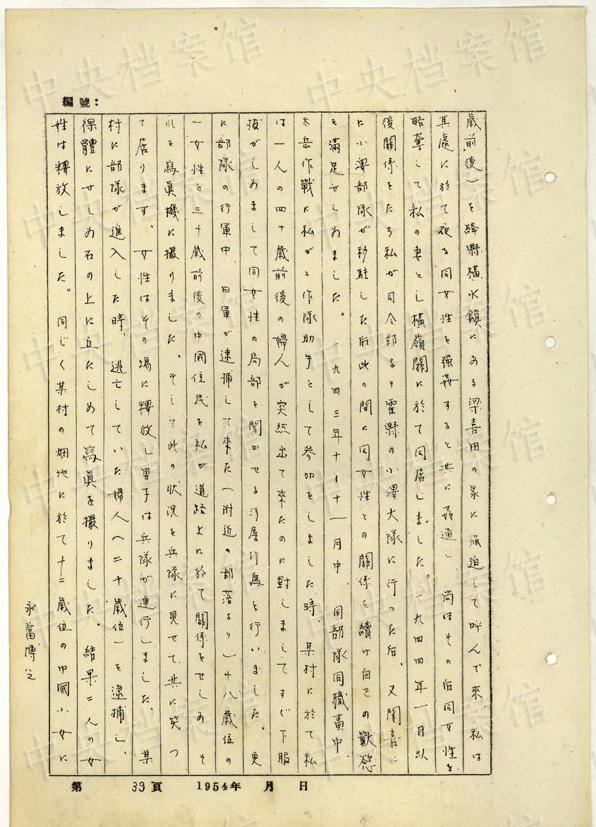 編號：
歳前後）を絳縣橫水鎭にある梁喜田の家に强迫して呼んで来、私は
其處に於て破る同女性を强姦すると共に姦通し 尚ほその后同女性を
略奪して私の妻とし橫嶺關に於て同居しました。一九四四年一月以
後關係をたち私が司令部より霍縣の小澤大隊に行った后、又聞喜
に小澤部隊が移駐した后此の間に同女性との關係を續け自己の獸慾
を滿足せしめました。 一九四三年十－十一月中 同部隊同職責中
太岳作戰に私が工作隊助手として参加をしました時、某村に於て私
は一人の四十歳前後の婦人が突然出て来たのに對しましてすぐ下服
をぬがしめまして同女性の局部を開かせる汚辱行爲を行いました。更
に部隊の行軍中 日軍が逮捕して来た（附近の部落より）十八歳位の
一女性と三十歳前後の中國住民を私が道路上に於て關係をせしめ そ
れを寫眞機に撮りました。そして此の狀況を兵隊に見せて共に笑つ
て居ります、女性はその場に釋放し男子は兵隊が連行しました。 某
村に部隊が進入した時、逃亡していた婦人（二十歳位）を逮捕し、
裸體にせしめ石の上に立たしめて寫眞を撮りました。結果二人の女
性は釋放しました。同じく某村の畑地に於て十三歳位の中國少女に
永富博之
第 39頁 1954年 月 日
中央档案馆